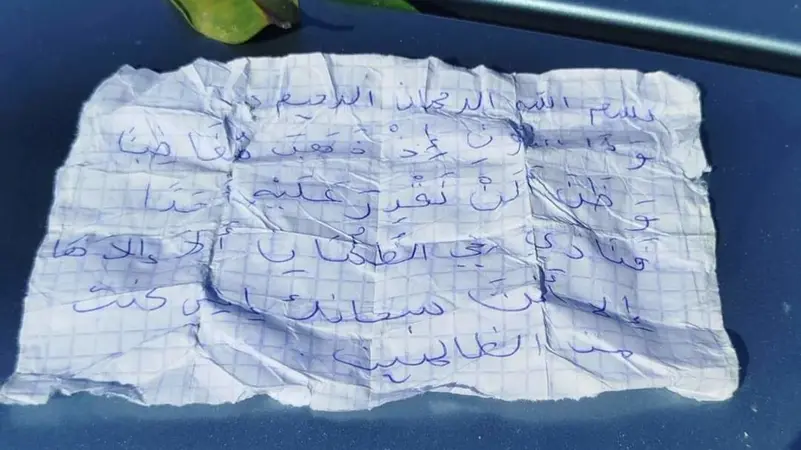 بسم الله الرحمان الرحيم
وَذَا النون إِذْ ذَهَبَ مُغَاضِبًا
وَظَنَ لَنْ نَقْدِرَ عَلَيْهِ أَحَدَا
فنادى في الظلمات ألا إلاها
إلا أنت سبحانك إني كنت
من الظالمين